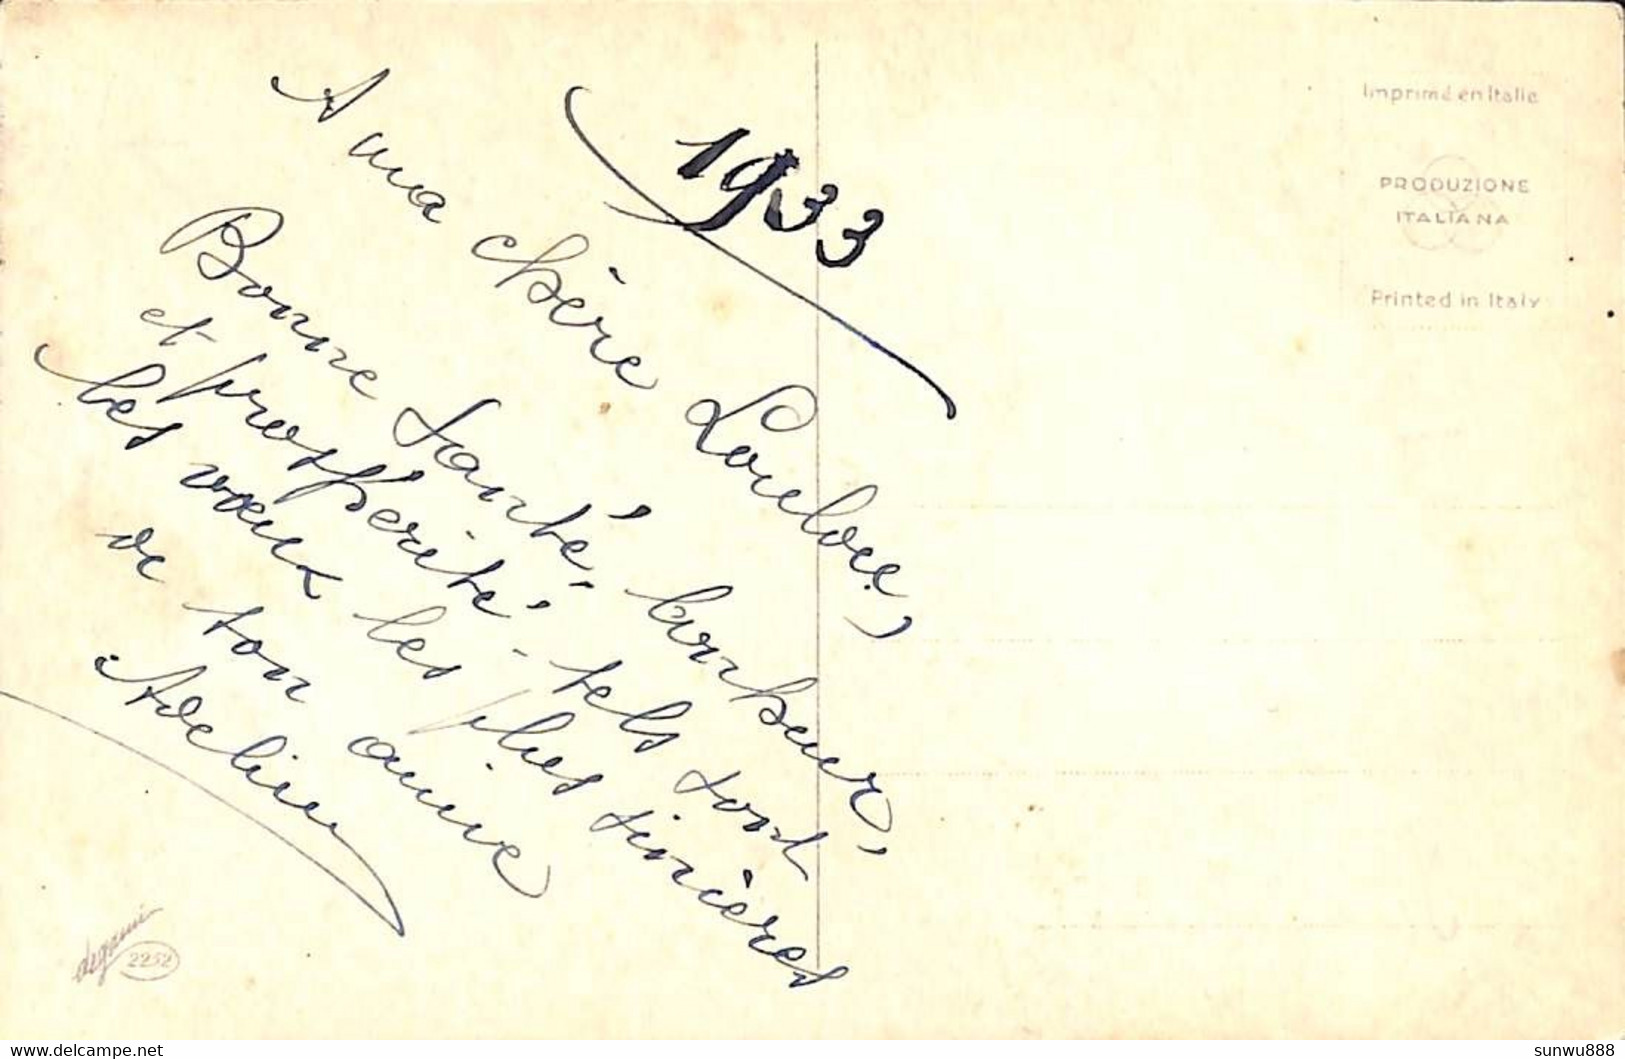 1933
A ma chère Loulou,
Bonne Santé, bonheur,
et prospérité - tels sont
les vœux les plus sincères
de ton amie
Adeline
degami
2252
Imprimé en Italie
PRODUZIONE
ITALIANA
Printed in Italy
www.delcampe.net
sunwu888